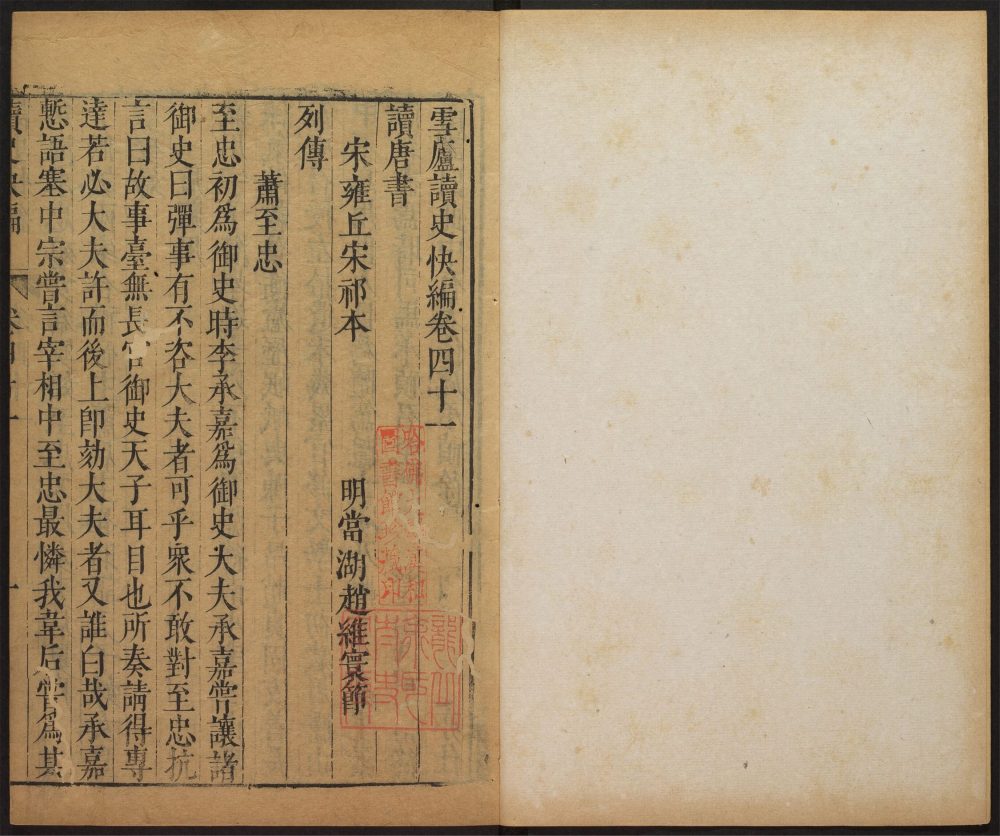 雪廬讀史快編卷四十一
讀唐書
宋雍丘宋祁本
明當湖趙維寰節
列傳
蕭至忠
至忠初爲御史時李承嘉爲御史大夫承嘉嘗讓諸
御史曰彈事有不咨大夫者可乎衆不敢對至忠抗
言曰故事臺無長官御史天子耳目也所奏請得專
達若必大夫許而後上卽劾大夫者又誰白哉承嘉
慙語塞中宗嘗言宰相中至忠最憐我韋后嘗爲其
讀史快編
卷四十一
一